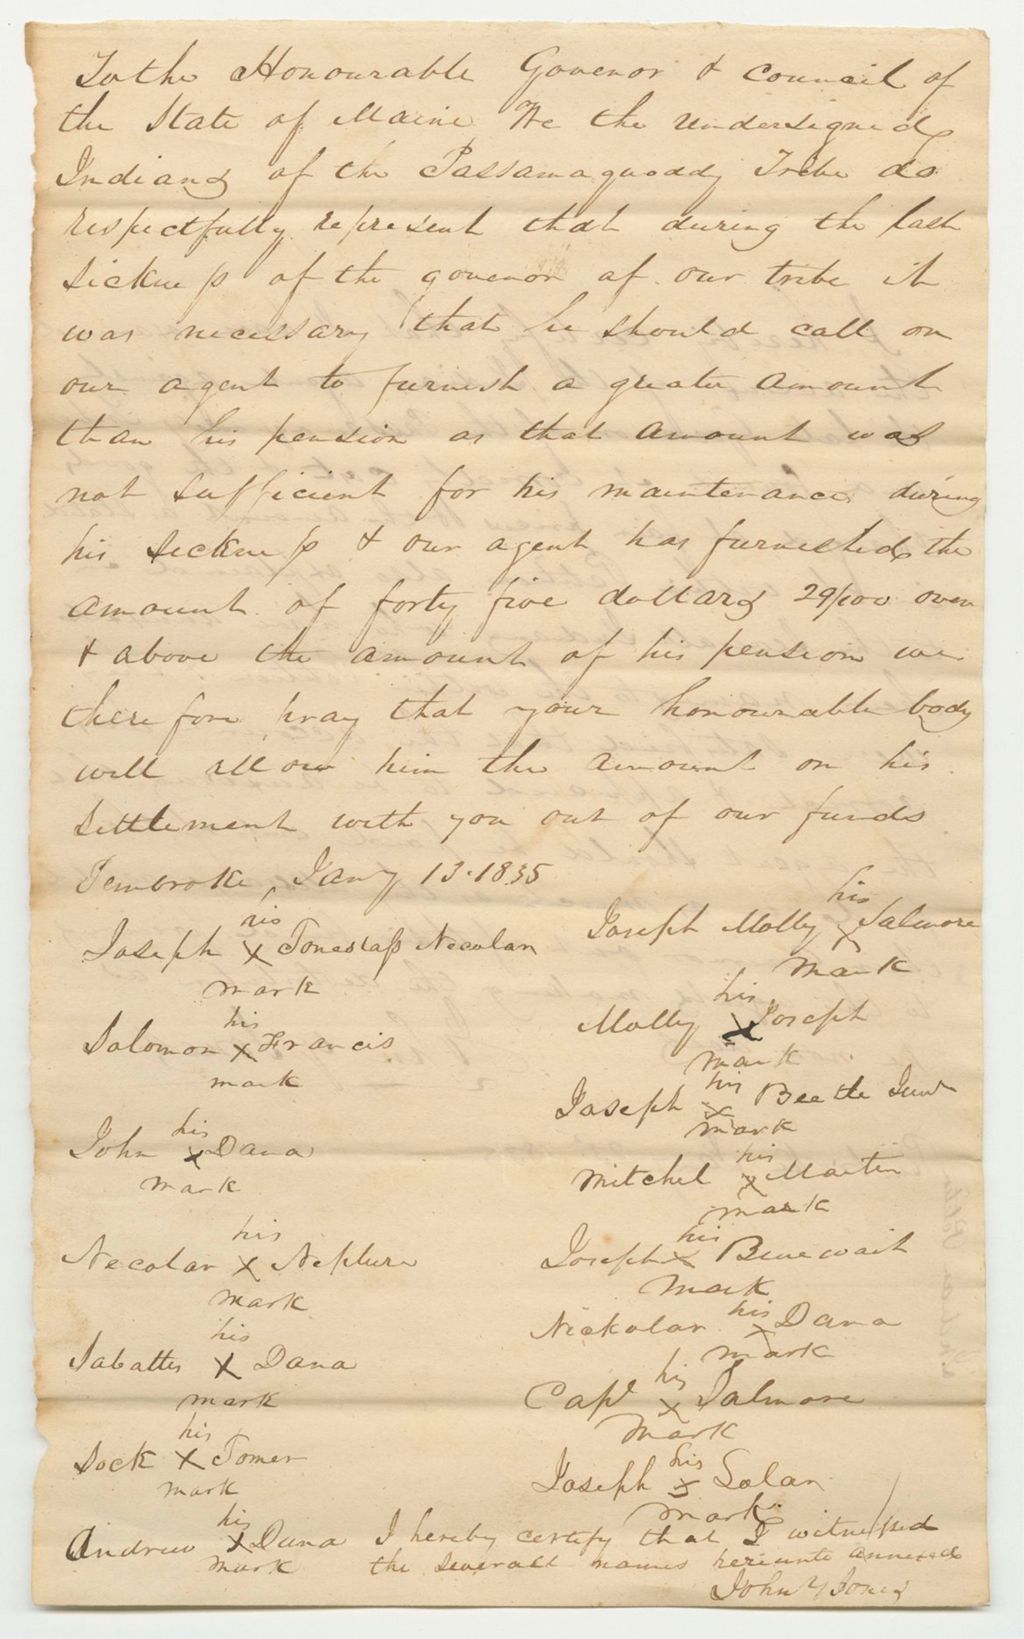 To the Honourable Govenor & Council of
the State of Maine We the undersigned
Indians of the Passamaquoddy Tribe do
respectfully represent that during the last
sickness of the govenor of our tribe it
was necessary that he should call on
our agent to furnish a greater amount
than his pension as that amount was
not sufficient for his maintenance during
his sickness & our agent has furnished the
amount of forty five dollars 29/100 over
& above the amount of his pension we
therefore pray that your honourable body
will allow him the amount on his
settlement with you out of our funds
Pembroke, Jany 13. 1835
his
Joseph X Necolar
mark
his
Salomon X Francis
mark
his
John X Dana
mark
his
Necolar X Nepture
mark
his
Sabattis X Dana
mark
his
Sock X Tomer
mark
his
Andrew X Dana
mark
his
Joseph Molly X Salmore
mark
his
Molly X Joseph
mark
his
Joseph X Beetle Junr
mark
his
Mitchel X Martin
mark
his
Joseph X
mark
his
Nickolar X Dana
mark
his
Capt X Salmore
mark
his
Joseph X Solan
mark
I hereby certify that I witnessed
the severall names hereunto annexed
John Y Jones